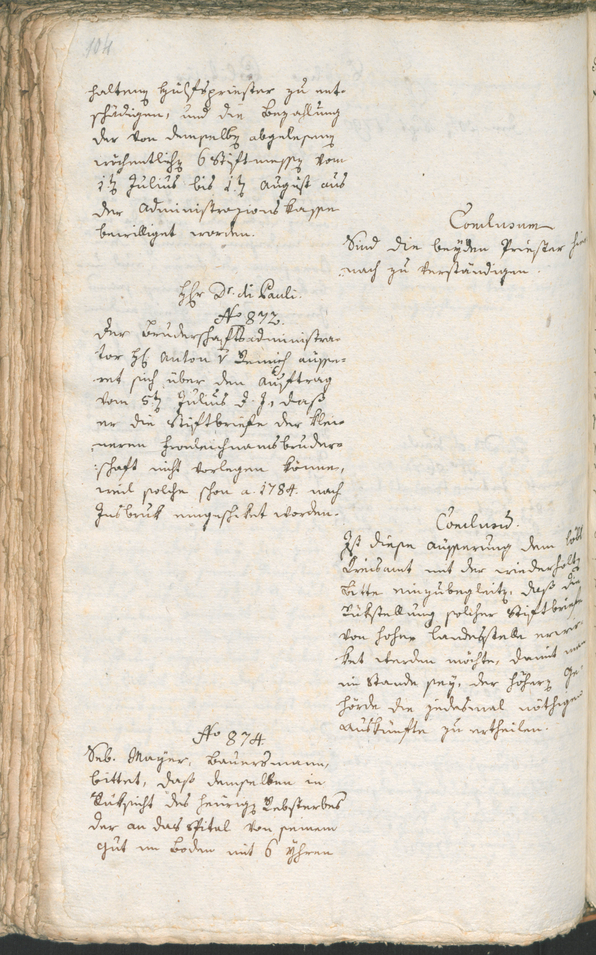 104
haltenen Hülfspriester zu ent-
schädigen, und die Bezahlung
der von demselben abgelesenen
wöchentlichen 6 Stiftmessen vom
1ten Julius bis 1ten August aus
der Administrazions Kasse
bewilliget worden.
Conclusum
Sind die beyden Priester
nach zu verständigen.
Hr Dr. di Pauli.
No 872.
Der Bruderschaftsadministra-
tor H. Anton v
ret sich über den Auftrag
vom 5ten Julius d. J., daß
er die Stiftbriefe der klei-
neren Fronleichnamsbruder-
schaft nicht vorlegen könne,
weil solche schon a. 1784. nach
Insbruk eingeschiket worden.
Conclusum.
Ist diese Äusserung dem löbl
Kreisamt mit der wiederholten
Bitte einzubegleiten, daß die
Rükstellung solcher Stiftbriefe
von hoher Landesstelle erwir-
ket werden möchte, damit man
im Stande sey, der höheren Be-
hörde die jedesmal nöthigen
Auskünfte zu ertheilen.
No 874.
Seb. Mayer, Bauersmann,
bittet, daß demselben in
Rüksicht des heurigen
der an das Spital von seinem
Gut im Boden mit 6 Yhren